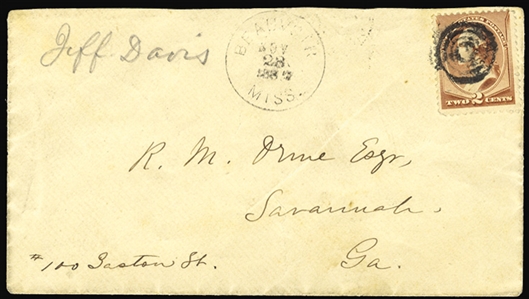 Jeff Davis
BEAUVOIR
NOV
28
MISS.
UNITED STATES POSTAGE
TWO 2 CENTS
R. M. Orme Esqr,
Savannah.
# 100 Gaston St.
Ga.